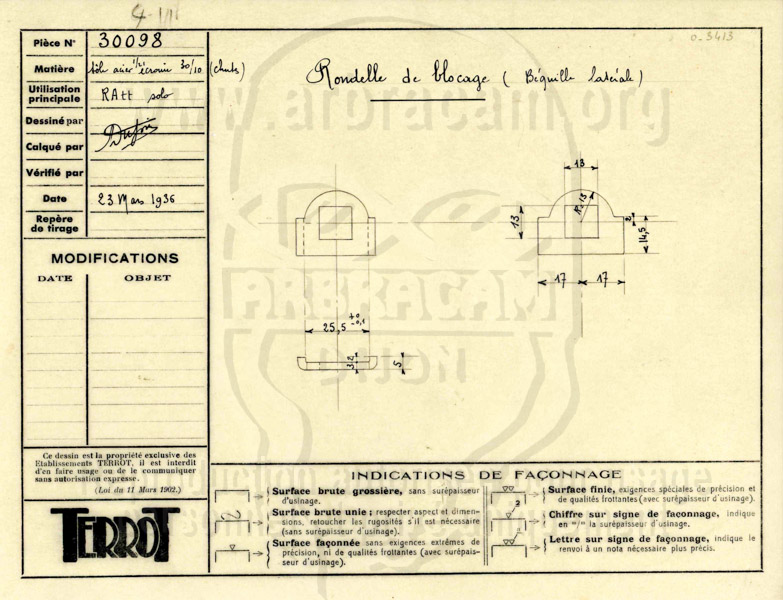 4-1/11
0-3413
Pièce No 30098
Matière tôle acier écrouie 30/10 (chutes)
Utilisation principale RAtt solo
Dessiné par Dufour
Calqué par
Vérifié par
Date 23 Mars 1936
Repère de tirage
MODIFICATIONS
DATE OBJET
Ce dessin est la propriété exclusive des
Etablissements TERROT, il est interdit
d'en faire usage ou de le communiquer
sans autorisation expresse.
(Loi du 11 Mars 1902.)
TERROT
Rondelle de blocage (Béquille latérale)
www.arbracam.org
13
R=13
13
2
14,5
17 17
ARBRACAM
25,5 +0 -0,1
UNION
5
INDICATIONS DE FAÇONNAGE
Surface brute grossière, sans surépaisseur
d'usinage.
Surface brute unie ; respecter aspect et dimen-
sions, retoucher les rugosités s'il est nécessaire
(sans surépaisseur d'usinage).
Surface façonnée sans exigences extrêmes de
précision, ni de qualités frottantes (avec surépais-
seur d'usinage).
Surface finie, exigences spéciales de précision et
de qualités frottantes (avec surépaisseur d'usinage).
Chiffre sur signe de façonnage, indique
en "/" la surépaisseur d'usinage.
Lettre sur signe de façonnage, indique le
renvoi à un nota nécessaire plus précis.